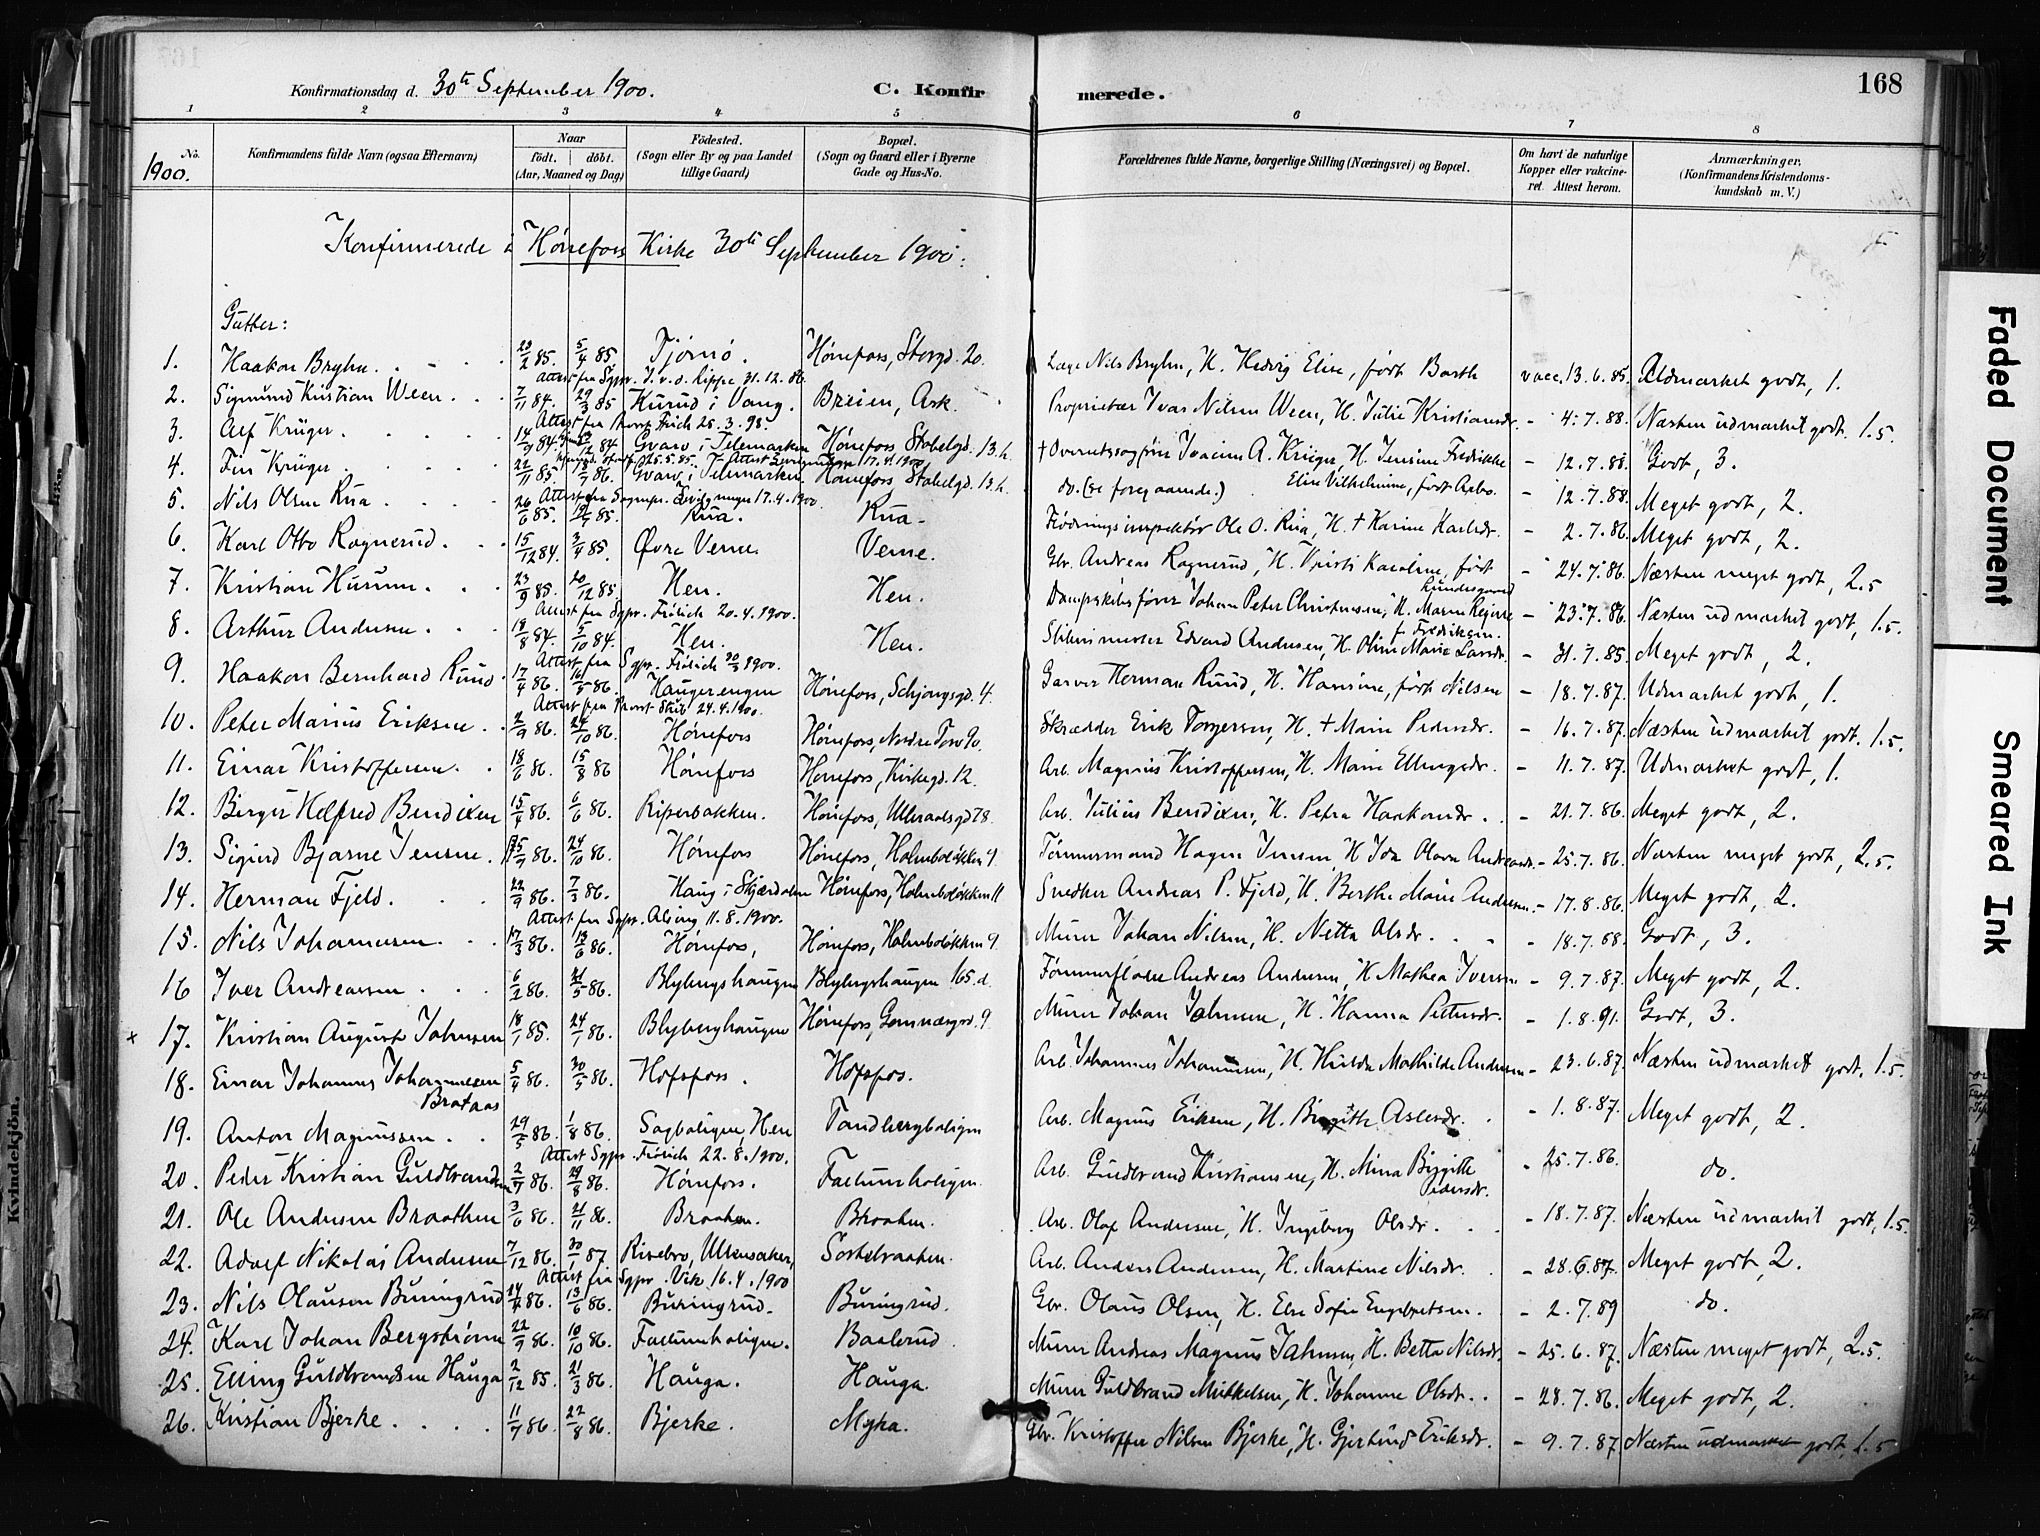 Konfirmationsdag d. 30te September 1900. C. Konfirmerede. 168
1 2 3 4 5 6 7 8
No. Konfirmandens fulde Navn (ogsaa Efternavn) Naar födt. döbt. (Aar, Maaned og Dag) Födested. (Sogn eller By og paa Landet tillige Gaard) Bopæl. (Sogn og Gaard eller i Byerne Gade og Hus-No. Forældrenes fulde Navne, borgerlige Stilling (Næringsvei) og Bopæl. Om havt de naturlige Kopper eller vakcineret. Attest herom. Anmærkninger. (Konfirmandens Kristendomskundskab m. V.)
1900.
Konfirmerede i Hønefoss Kirke 30te September 1900.
Gutter:
1. Haakon Bryhn. 5/4 85. Tjømö. Hønefoss, Storgd. 20. Læge Nils Bryhn, H. Hedvig Elise, født Barth vacc. 13.6.85. Udmærket godt, 1.
Attest fra Sgpr. J. v. d. Lippe, 31.12.86
2. Sigmund Kristian Ween. 7/11 84. 29/3 85 Kurud i Vang. Breien, Ask. Proprietær Ivar Nilsen Ween, H. Julie Kristiansdr. - 4.7.88. Næsten udmærket godt. 1.5.
3. Alf Krüger. 14/9 84 Gvarv i Telemarken Hønefoss Stabelgd. 13.h. + Overretssagfører Joacim A. Krüger, H. Jensine Fredrikke Elise Vilhelmine, født Aabo. - 12.7.88. Godt, 3.
4. Fin Krüger. 22/11 85. Gvarv i Telemarken. Hønefoss Stabelgd. 13.h. do. (se foregaaende.) - 12.7.88. Meget godt, 2.
Attest fra Sognepr. 17.4.1900
5. Nils Olsen Rua 26/6 85. 19/7 85. Rua. Rua. Flødningsinspektør Ole O. Rua, H. + Karine Karlsdr. - 2.7.86. Meget godt, 2.
6. Karl Otto Ragnerud. 15/12 84. 3/4 85. Øvre Verne. Verne. Gbr. Andreas Ragnerud, H. Kristi Karoline, født Lundesgaard - 24.7.86. Næsten meget godt, 2.5
7. Kristian Hurum. 23/9 85. 20/12 85. Hen. Hen. Dampskibsfører Johan Peter Christensen, H. Maren Regine f. Fredriksen. - 23.7.86. Næsten udmærket godt, 1.5.
Attest fra Sgpr. Frölich 20.4.1900.
8. Arthur Andersen. 18/8 84. 5/10 84. Hen. Hen. Sliberimester Edvard Andersen, H. Oline Marie Larsdr. - 31.7.85. Meget godt, 2.
Attest fra Sgpr. Frölich 30/3 1900.
9. Haakon Bernhard Ruud 17/4 86. 16/5 86. Haugerengen Hønefoss, Schjongsgd. 4. Garver Herman Ruud, H. Hansine, født Nilsen - 18.7.87. Udmærket godt, 1.
Attest fra Provst 24.4.1900.
10. Peter Marius Eriksen. 2/9 86. 24/10 86. Hønefoss Hønefoss, Nordre Torv 9a. Skrædder Erik Torgersen, H. + Marie Pedersdr. - 16.7.87. Næsten udmærket godt. 1.5.
11. Einar Kristoffersen. 18/6 86. 15/8 86 Hønefoss Hønefoss, Kirkegd. 12. Arb. Magnus Kristoffersen, H. Marie Ellingsdr. - 11.7.87. Udmærket godt, 1.
12. Birger Helfred Bendixen 15/4 86. 6/6 86. Riperbakken. Hønefoss, Ulleraalsgd 78. Arb. Julius Bendixen, H. Petra Haakonsdr. - 21.7.86. Meget godt, 2.
13. Sigurd Bjarne Jensen. 25/9 86. 24/10 86. Hønefoss Hønefoss, Holmboløkken 9. Tømmermand Hagen Jensen H. Ida Olava Andreasdr. - 25.7.86. Næsten meget godt, 2.5.
14. Herman Fjeld. 22/9 86. 7/3 86. Haug i Skjærdalen Hønefoss, Holmboløkken 11 Snedker Andreas P. Fjeld, H. Berthe Marie Andersen. - 17.8.86. Meget godt, 2.
Attest fra Sgpr. Alsing 11.8.1900.
15. Nils Johannesen. 17/3 86. 13/6 86. Hønefoss, Hønefoss, Holmboløkken 9. Murer Johan Nilsen, H. Netta Olsdr. - 18.7.88. Godt, 3.
16 Iver Andreassen. 6/2 86. 21/5 86. Blybergshaugen Blybergshaugen 165.d. Tømmerfløder Andreas Andersen, H. Mathea Iversen - 9.7.87. Meget godt, 2.
× 17. Kristian August Johnsen 18/1 85. 24/1 86. Blyberghaugen Hønefoss, Gomnæsgd. 9. Murer Johan Johnsen, H. Hanna Pettersdr. - 1.8.91. Godt, 3.
18. Einar Johannes Johannessen Brataas 5/4 86. 30/5 86. Hofsfoss. Hofsfos. Arb. Johannes Johannessen, H. Hulda Mathilde Andersen - 23.6.87. Næsten udmærket godt, 1.5.
19. Anton Magnussen. 29/5 86. 1/8 86. Sagboligen, Hen Tandbergboligen Arb. Magnus Eriksen, H. Birgitte Aslesdr. - 1.8.87. Meget godt, 2.
Attest Sgpr. Frölich 22.8.1900.
20. Peder Kristian Guldbrandsen 2/7 86. 29/8 86. Hønefoss. Follumboligen. Arb. Guldbrand Kristiansen, H. Mina Birgitte Pedersdr. - 25.7.86. do.
21. Ole Andersen Braathen 3/6 86. 21/11 86. Braaten. Braaten. Arb. Olaf Andersen, H. Ingeborg Olsdr. - 18.7.87. Næsten udmærket godt, 1.5.
22. Adolf Nikolai Andersen 7/12 86. 30/1 87. Risebro, Ullensaker, Sortebraaten. Arb. Anders Andersen, H. Martine Nilsdr. - 28.6.87. Meget godt, 2.
Attest fra Sgpr. Vik 16.4.1900
23. Nils Olausen Buringrud 24/4 86. 13/6 86. Buringrud. Buringrud. Gbr. Olaus Olsen, H. Else Sofie Engebretsen. - 2.7.89 do.
24. Karl Johan Bergstrøm 22/9 86. 10/10 86. Follumboligen. Baalerud Murer Andreas Magnus Johnsen, H. Betta Nilsdr. - 25.6.87. Næsten meget godt, 2.5.
25. Elling Guldbrandsen Hauga 2/12 85. 21/3 86. Hauga. Hauga. Murer Guldbrand Mikkelsen, H. Johanne Olsdr. - 28.7.86. Meget godt, 2.
26. Kristian Bjerke. 11/7 86. 22/8 86. Bjerke. Myra. Gbr. Kristoffer Nilsen Bjerke, H. Gjertrud Eriksdr. - 9.7.87. Næsten udmærket godt, 1.5
Faded Document
Smeared Ink
Kvindekjön.